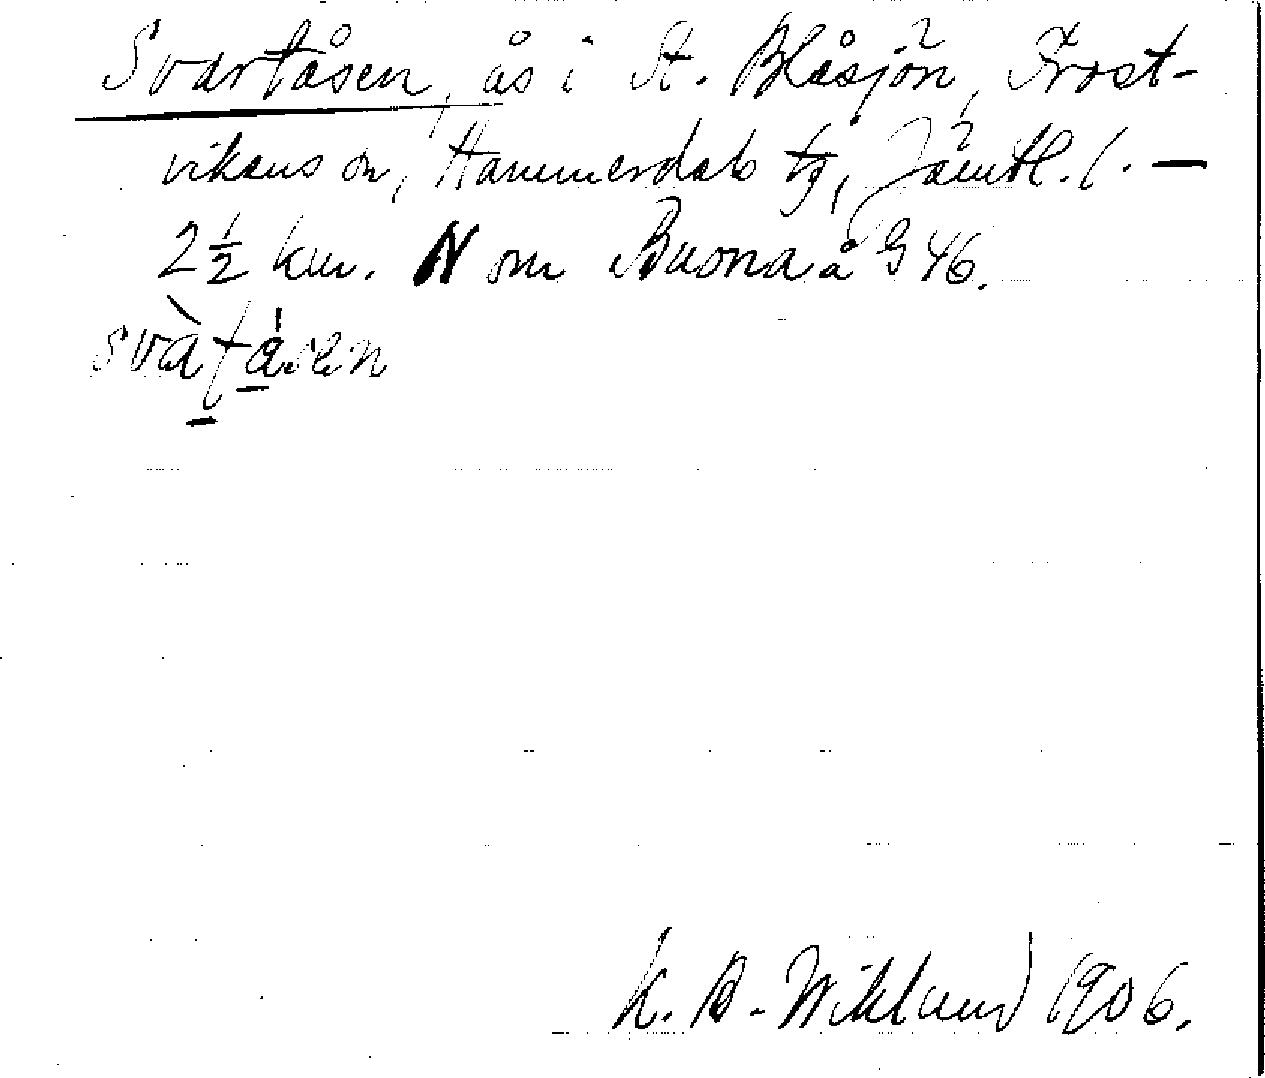 Svartåsen, ås i St. Blåsjön, Frost-
vikens sn, Hammerdals tg, Jämtl. l. —
2½ km. N om Buona å G 46.
svàtåsen
K. B. Wiklund 1906.